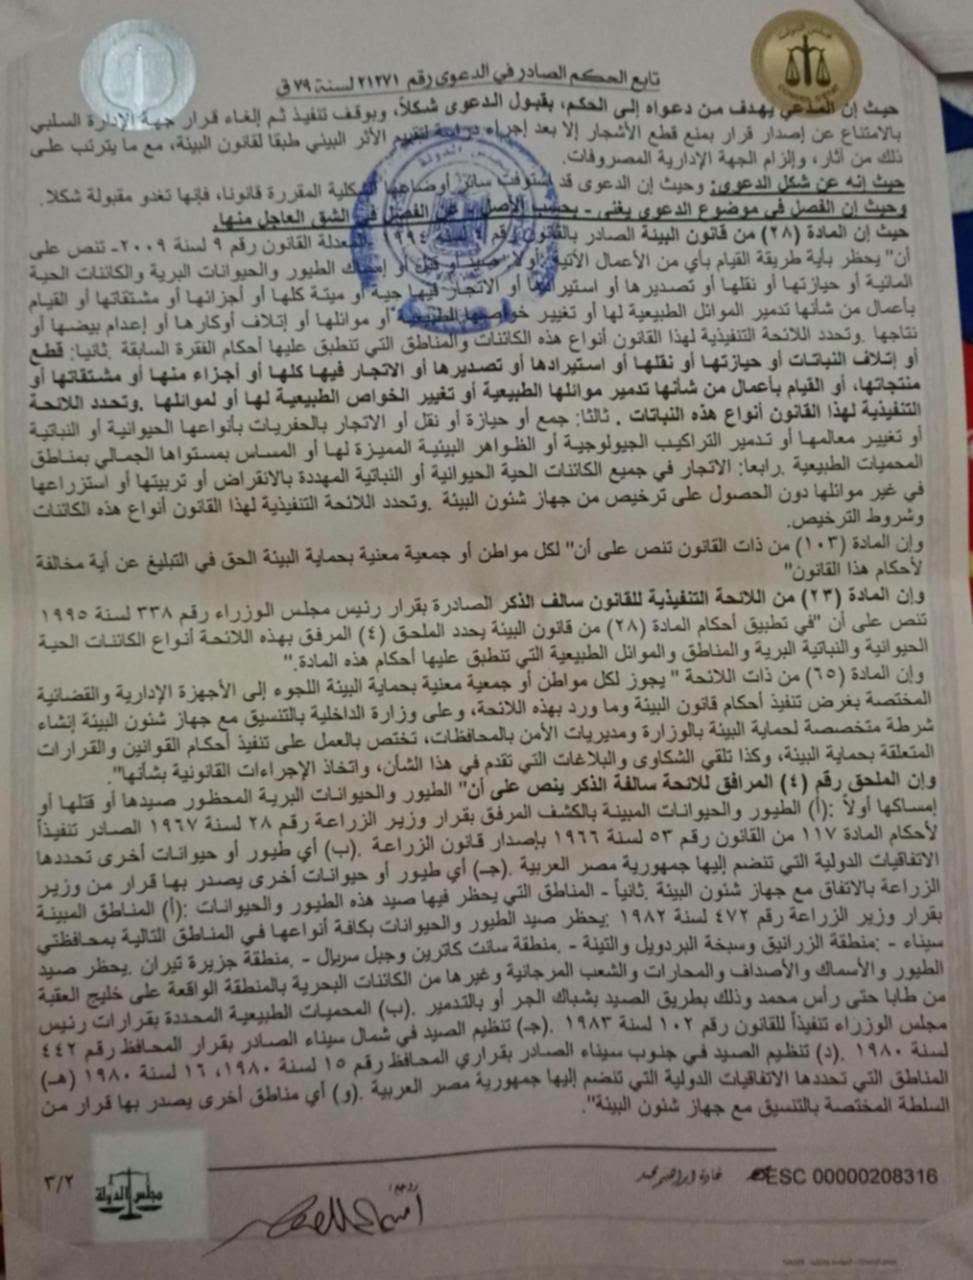 تابع الحكم الصادر في الدعوى رقم ٢١٢٧١ لسنة ٧٩ ق
حيث إن المدعي يهدف من دعواه إلى الحكم، بقبول الدعوى شكلاً، وبوقف تنفيذ ثم إلغاء قرار جهة الإدارة السلبي
بالامتناع عن إصدار قرار بمنع قطع الأشجار إلا بعد إجراء دراسة لتقييم الأثر البيئي طبقا لقانون البيئة، مع ما يترتب على
ذلك من آثار، وإلزام الجهة الإدارية المصروفات.
حيث إنه عن شكل الدعوى: وحيث إن الدعوى قد استوفت سائر أوضاعها الشكلية المقررة قانونا، فإنها تغدو مقبولة شكلا.
وحيث إن الفصل في موضوع الدعوى يغني - بحسب الأصل - عن الفصل في الشق العاجل منها.
حيث إن المادة (٢٨) من قانون البيئة الصادر بالقانون رقم ٤ لسنة ١٩٩٤ - المعدلة القانون رقم ٩ لسنة ٢٠٠٩- تنص على
أن" يحظر بأية طريقة القيام بأي من الأعمال الآتية: أولا: صيد أو قتل أو إمساك الطيور والحيوانات البرية والكائنات الحية
المائية أو حيازتها أو نقلها أو تصديرها أو استيرادها أو الاتجار فيها حية أو ميتة كلها أو أجزائها أو مشتقاتها أو القيام
بأعمال من شأنها تدمير الموائل الطبيعية لها أو تغيير خواصها الطبيعية أو موائلها أو إتلاف أوكارها أو إعدام بيضها أو
نتاجها .وتحدد اللائحة التنفيذية لهذا القانون أنواع هذه الكائنات والمناطق التي تنطبق عليها أحكام الفقرة السابقة .ثانيا: قطع
أو إتلاف النباتات أو حيازتها أو نقلها أو استيرادها أو تصديرها أو الاتجار فيها كلها أو أجزاء منها أو مشتقاتها أو
منتجاتها، أو القيام بأعمال من شأنها تدمير موائلها الطبيعية أو تغيير الخواص الطبيعية لها أو لموائلها .وتحدد اللائحة
التنفيذية لهذا القانون أنواع هذه النباتات . ثالثا: جمع أو حيازة أو نقل أو الاتجار بالحفريات بأنواعها الحيوانية أو النباتية
أو تغيير معالمها أو تدمير التراكيب الجيولوجية أو الظواهر البيئية المميزة لها أو المساس بمستواها الجمالي بمناطق
المحميات الطبيعية .رابعا: الاتجار في جميع الكائنات الحية الحيوانية أو النباتية المهددة بالانقراض أو تربيتها أو استزراعها
في غير موائلها دون الحصول على ترخيص من جهاز شئون البيئة .وتحدد اللائحة التنفيذية لهذا القانون أنواع هذه الكائنات
وشروط الترخيص.
وإن المادة (١٠٣) من ذات القانون تنص على أن" لكل مواطن أو جمعية معنية بحماية البيئة الحق في التبليغ عن أية مخالفة
لأحكام هذا القانون"
وإن المادة (٢٣) من اللائحة التنفيذية للقانون سالف الذكر الصادرة بقرار رئيس مجلس الوزراء رقم ٣٣٨ لسنة ١٩٩٥
تنص على أن "في تطبيق أحكام المادة (٢٨) من قانون البيئة يحدد الملحق (٤) المرفق بهذه اللائحة أنواع الكائنات الحية
الحيوانية والنباتية البرية والمناطق والموائل الطبيعية التي تنطبق عليها أحكام هذه المادة."
وإن المادة (٦٥) من ذات اللائحة " يجوز لكل مواطن أو جمعية معنية بحماية البيئة اللجوء إلى الأجهزة الإدارية والقضائية
المختصة بغرض تنفيذ أحكام قانون البيئة وما ورد بهذه اللائحة، وعلى وزارة الداخلية بالتنسيق مع جهاز شئون البيئة إنشاء
شرطة متخصصة لحماية البيئة بالوزارة ومديريات الأمن بالمحافظات، تختص بالعمل على تنفيذ أحكام القوانين والقرارات
المتعلقة بحماية البيئة، وكذا تلقي الشكاوى والبلاغات التي تقدم في هذا الشأن، واتخاذ الإجراءات القانونية بشأنها".
وإن الملحق رقم (٤) المرافق للائحة سالفة الذكر ينص على أن" الطيور والحيوانات البرية المحظور صيدها أو قتلها أو
إمساكها أولاً :(أ) الطيور والحيوانات المبينة بالكشف المرفق بقرار وزير الزراعة رقم ٢٨ لسنة ١٩٦٧ الصادر تنفيذاً
لأحكام المادة ١١٧ من القانون رقم ٥٣ لسنة ١٩٦٦ بإصدار قانون الزراعة .(ب) أي طيور أو حيوانات أخرى تحددها
الاتفاقيات الدولية التي تنضم إليها جمهورية مصر العربية .(جـ) أي طيور أو حيوانات أخرى يصدر بها قرار من وزير
الزراعة بالاتفاق مع جهاز شئون البيئة .ثانياً - المناطق التي يحظر فيها صيد هذه الطيور والحيوانات :(أ) المناطق المبينة
بقرار وزير الزراعة رقم ٤٧٢ لسنة ١٩٨٢ :يحظر صيد الطيور والحيوانات بكافة أنواعها في المناطق التالية بمحافظتي
سيناء - :منطقة الزرانيق وسبخة البردويل والتينة - .منطقة سانت كاترين وجبل سربال - .منطقة جزيرة تيران .يحظر صيد
الطيور والأسماك والأصداف والمحارات والشعب المرجانية وغيرها من الكائنات البحرية بالمنطقة الواقعة على خليج العقبة
من طابا حتى رأس محمد وذلك بطريق الصيد بشباك الجر أو بالتدمير .(ب) المحميات الطبيعية المحددة بقرارات رئيس
مجلس الوزراء تنفيذاً للقانون رقم ١٠٢ لسنة ١٩٨٣ .(جـ) تنظيم الصيد في شمال سيناء الصادر بقرار المحافظ رقم ٤٤٢
لسنة ١٩٨٠ .(د) تنظيم الصيد في جنوب سيناء الصادر بقراري المحافظ رقم ١٥ لسنة ١٩٨٠، ١٦ لسنة ١٩٨٠ (هـ)
المناطق التي تحددها الاتفاقيات الدولية التي تنضم إليها جمهورية مصر العربية .(و) أي مناطق أخرى يصدر بها قرار من
السلطة المختصة بالتنسيق مع جهاز شئون البيئة".
ESC 00000208316
غادة إبراهيم محمد
٣/٢
مجلس الدولة